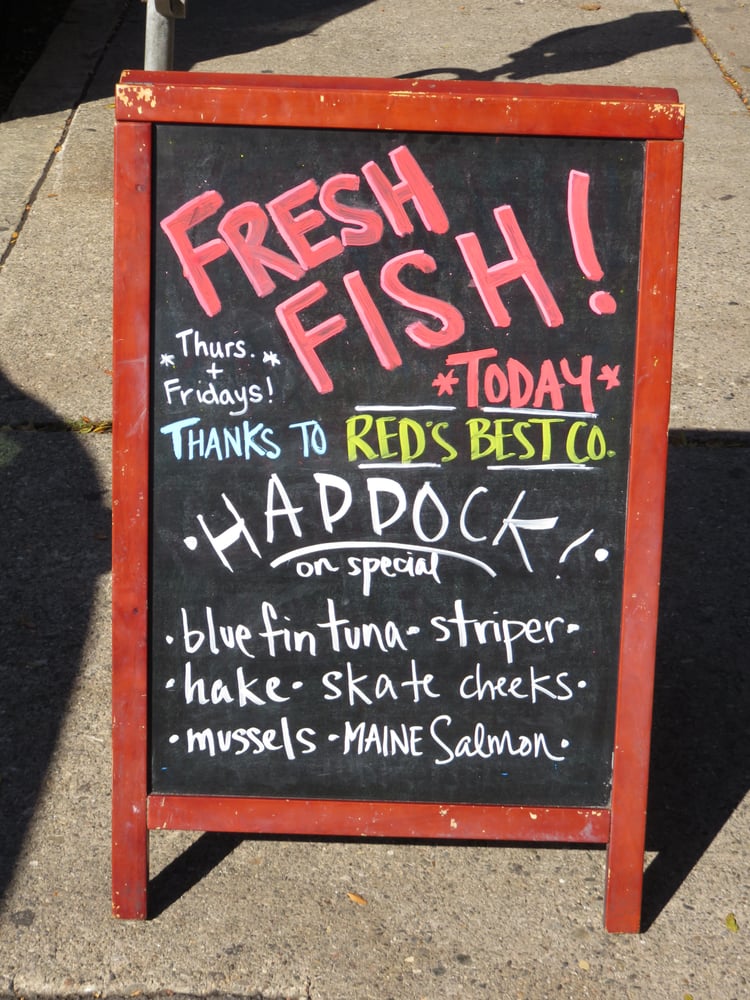 FRESH
FISH!
*Thurs.*
+
Fridays!
*TODAY*
THANKS TO RED'S BEST CO.
·HADDOCK!·
on special
·blue fin tuna· striper·
·hake· skate cheeks·
·mussels ·MAINE Salmon·